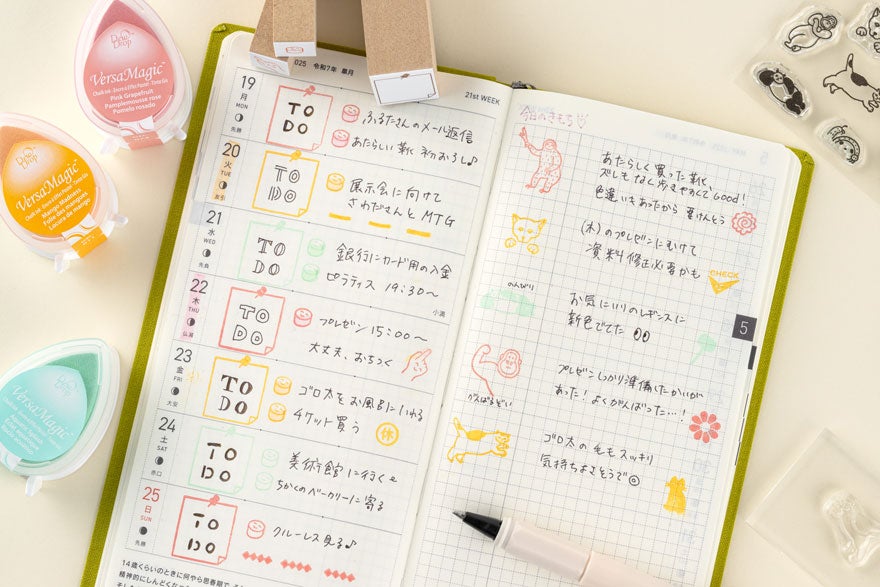 Dew Drop
VersaMagic
Pink Grapefruit
Pamplemousse rose
Pomelo rosado
Dew Drop
VersaMagic
Mango Madness
Folie des mangues
Locura de mango
VersaMagic
025 令和7年 皐月
21st WEEK
19
月
MON
先勝
TO DO
ふるたさんのメール返信
あたらしい靴 初おろし♪
20
火
TUE
友引
TO DO
展示会に向けて
さわださんと MTG
21
水
WED
先負
TO DO
銀行にカード用の入金
ピラティス 19:30〜
小満
22
木
THU
仏滅
TO DO
プレゼン 15:00〜
大丈夫、おちつく
23
金
FRI
大安
TO DO
ゴロ太をお風呂にいれる
チケット買う
休
24
土
SAT
赤口
TO DO
美術館に行く
ちかくのベーカリーに寄る
25
日
SUN
先勝
TO DO
クルーレス見る♪
14歳くらいのときに何やら思春期で
今日のきもち
あたらしく買った靴、
ズレもなく歩きやすくてGood!
色違いもあったから 要けんとう
(木)のプレゼンにむけて
資料修正必要かも
CHECK
のんびり
お気にいりのレギンスに
新色でてた
5
プレゼンしっかり準備したかいが
あった!よくがんばった…!
がんばるぞい
ゴロ太の毛もスッキリ
気持ちよさそうで◎